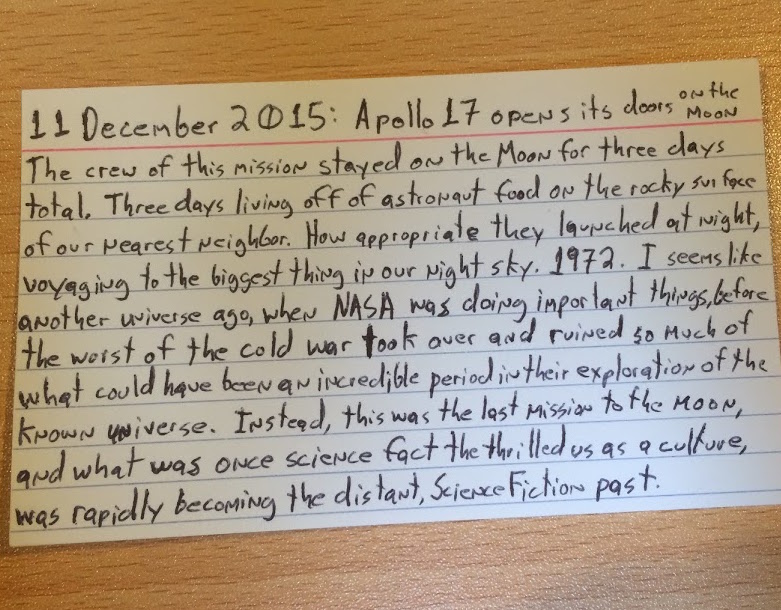 11 December 2015: Apollo 17 opens its doors on the Moon
The crew of this mission stayed on the Moon for three days
total. Three days living off of astronaut food on the rocky surface
of our nearest neighbor. How appropriate they launched at night,
voyaging to the biggest thing in our night sky. 1972. I seems like
another universe ago, when NASA was doing important things, before
the worst of the cold war took over and ruined so much of
what could have been an incredible period in their exploration of the
known universe. Instead, this was the last mission to the Moon,
and what was once science fact the thrilled us as a culture,
was rapidly becoming the distant, Science Fiction past.